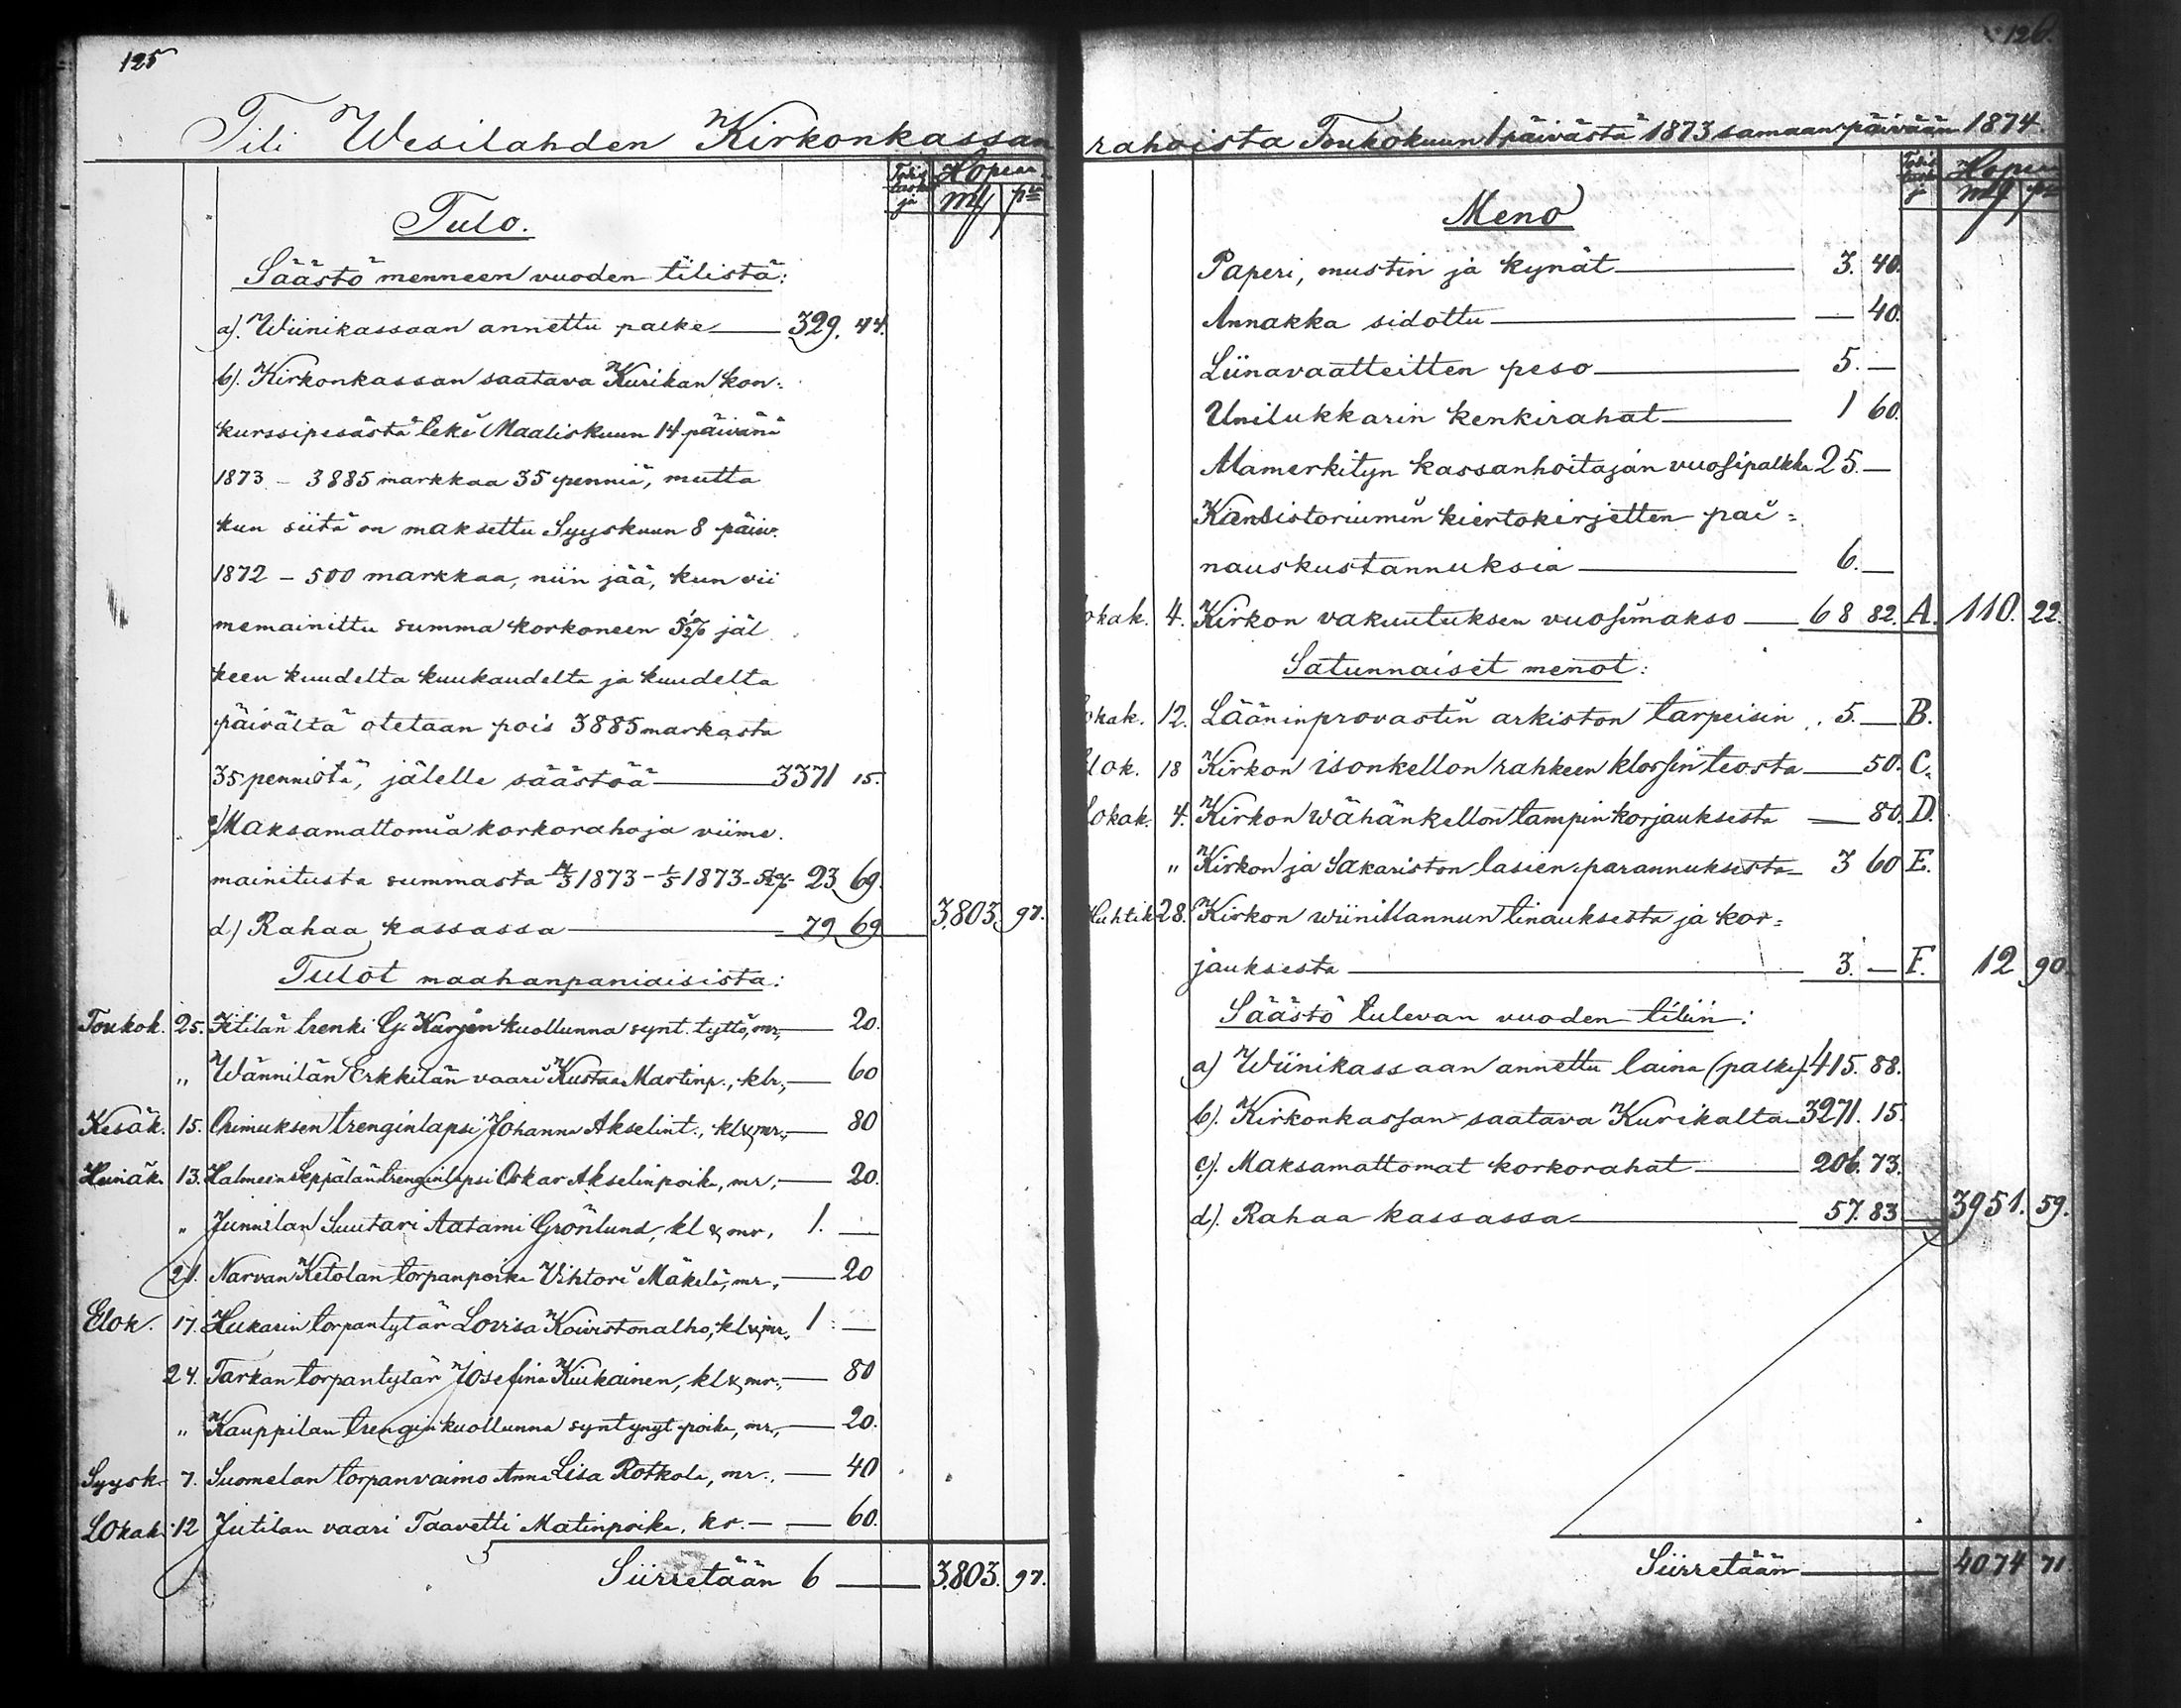 125
Tili Wesilahden Kirkonkassan
Todis
tuska
ja
Hopea
mk
pi
Tulo.
Säästö menneen vuoden tilistä:
a). Wiinikassaan annettu palke 329. 44.
b). Kirkonkassan saatava Kurikan kon-
kurssipesästä teki Maaliskuun 14 päivänä
1873 - 3885 markkaa 35 penniä, mutta
kun siitä on maksettu Syyskuun 8 päiv.
1872 - 500 markkaa, niin jää, kun vii
memainittu summa korkoneen 5½% jäl
keen kuudelta kuukaudelta ja kuudelta
päivältä otetaan pois 3885 markasta
35 pennistä, jälelle säästöä 3371 15.
c) Maksamattomia korkorahoja viime.
mainitusta summasta 14/3 1873 - 1/5 1873 - 5½% 23 69.
d) Rahaa kassassa 79 69 3803. 97.
Tulot maahanpaniaisista:
Toukok. 25. Kitilän trenki G. Karjen kuollunna synt. tyttö, mr, — 20.
" Wännilän Erkkilän vaari Kustaa Martinp., klr, — 60
Kesäk. 15. Onimuksen trenginlapsi Johanna Akselint., kl & mr, — 80
Heinäk. 13. Halmeen Seppälän trenginlapsi Oskar Akselinpoika, mr, — 20.
" Junnilan Suutari Aatami Grönlund, kl & mr, 1. —
21. Narvan Ketolan torpanpoika Vihtori Mäkelä, mr, — 20
Elok. 17. Hukarin torpantytär Lovisa Koivistonalho, kl & mr, 1. —
24. Tarkan torpantytär Josefina Kiukainen, kl & mr, — 80
" Kauppilan trengin kuollunna syntynyt poika, mr, — 20.
Syysk. 7. Suomelan torpanvaimo Anna Lisa Rotkola, mr., — 40
Lokak. 12 Jutilan vaari Taavetti Matinpoika, kr. — — 60.
Siirretään 6 — 3803. 97.
126.
rahoista Toukokuun 1 päivästä 1873 samaan päivään 1874.
Todis
tuska
j
Hopea
mk
pi
Meno
Paperi, mustin ja kynät 3. 40.
Annakka sidottu — 40.
Liinavaatteitten peso 5. —
Unilukkarin kenkirahat 1 60.
Alamerkityn kassanhoitajan vuosipalkka 25. —
Konsistoriumin kiertokirjetten pai-
nauskustannuksia 6. —
okak. 4. Kirkon vakuutuksen vuosimakso 68 82. A. 110. 22.
Satunnaiset menot:
okak. 12. Lääninprovastin arkiston tarpeisin 5. — B.
lok. 18 Kirkon isonkellon rahkeen klossin teosta — 50. C.
Lokak. 4. Kirkon wähänkellon tampin korjauksesta — 80. D.
" Kirkon ja Sakariston lasien parannuksesta 3 60 E.
Huhtik 28. Kirkon wiinikannun tinauksesta ja kor-
jauksesta 3. — F. 12 90.
Säästö tulevan vuoden tiliin:
a) Wiinikassaan annettu laina (palke) 415. 88.
b). Kirkonkassan saatava Kurikalta 3271. 15.
c). Maksamattomat korkorahat 206. 73.
d). Rahaa kassassa 57. 83 3951. 59.
Siirretään 4074 71